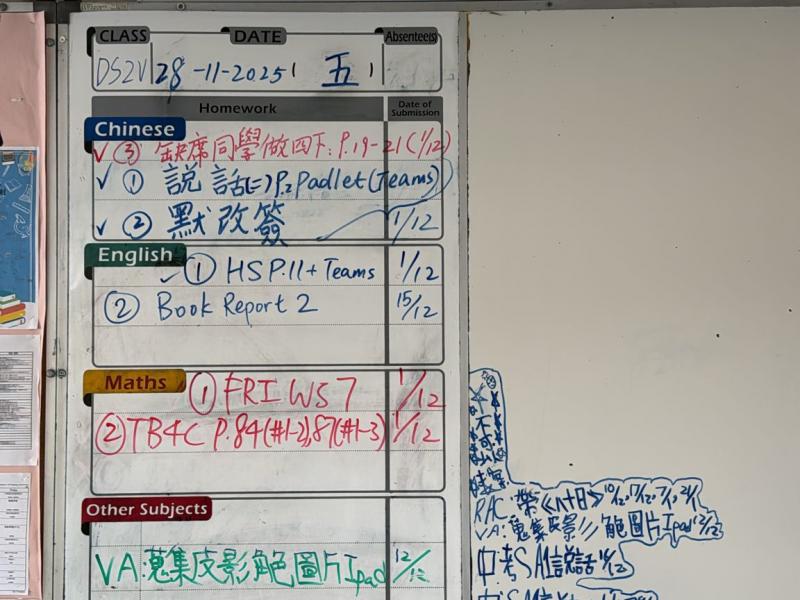 CLASS DATE Absentee(s)
DS2V 28-11-2025 (五)
Homework Date of Submission
Chinese
✓ ③ 缺席同學做四下: P.19-21 (1/12)
✓ ① 說話(二) P.2 Padlet (Teams)
✓ ② 默改簽 1/12
English
✓ ① HS P.11 + Teams 1/12
② Book Report 2 15/12
Maths
① FRI WS 7 1/12
② TB4C P.84(#1-2), 87(#1-3) 1/12
Other Subjects
VA: 蒐集皮影角色圖片 Ipad 12/12
不可
RAC: 帶《八十日》10/12, 17/12, 7/1, 21/1
VA: 蒐集皮影 角色圖片 Ipad 12/12
中考SA1說話